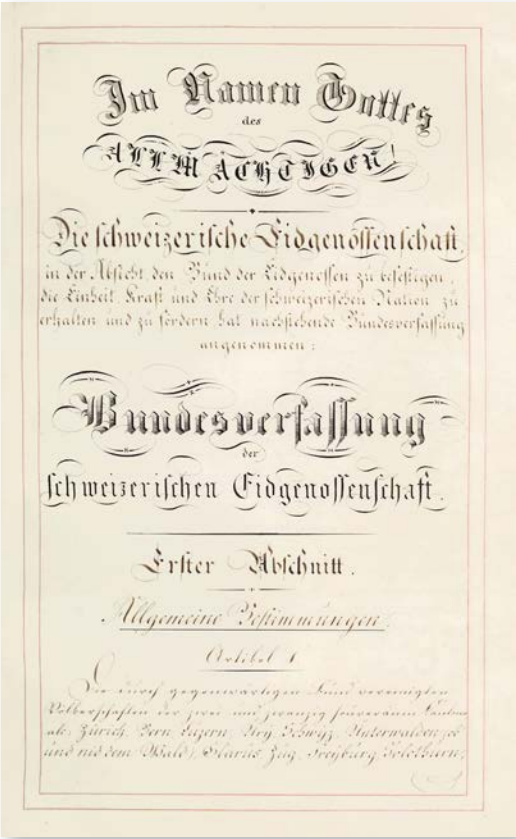 Im Namen Gottes
des
ALLMÄCHTIGEN!
Die schweizerische Eidgenossenschaft,
in der Absicht, den Bund der Eidgenossen zu befestigen,
die Einheit, Kraft und Ehre der schweizerischen Nation zu
erhalten und zu fördern, hat nachstehende Bundesverfassung
angenommen:
Bundesverfassung
der
schweizerischen Eidgenossenschaft.
Erster Abschnitt.
Allgemeine Bestimmungen.
Artikel 1
Die durch gegenwärtigen Bund vereinigten
Völkerschaften der zwei und zwanzig souveränen Kantone
als: Zürich, Bern, Luzern, Ury, Schwyz, Unterwalden, (ob
und nid dem Wald) Glarus, Zug, Freyburg, Solothurn,